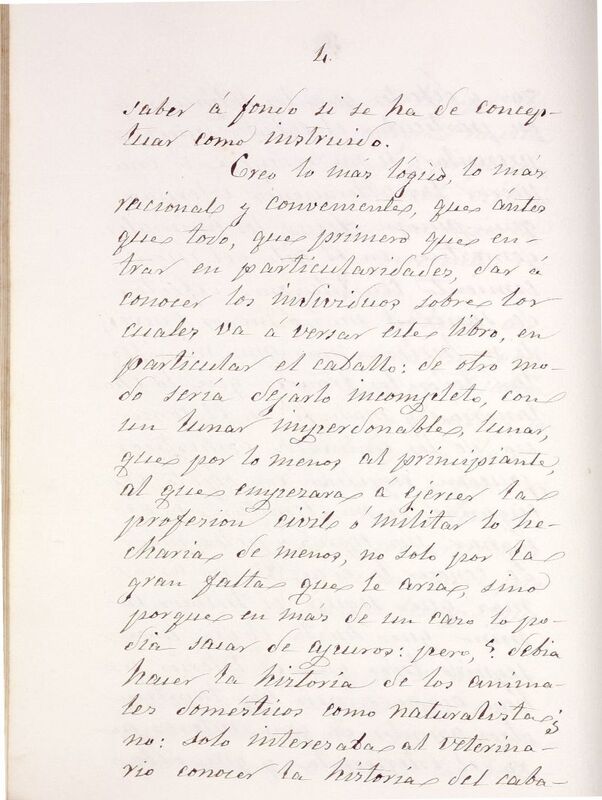 4.
saber á fondo si se ha de concep-
tuar como instruido.
Creo lo más lógico, lo más
racional y conveniente, que ántes
que todo, que primero que en-
trar en particularidades, dar á
conocer los individuos sobre los
cuales va á versar este libro, en
particular el caballo: de otro mo-
do sería dejarlo incompleto, con
un lunar imperdonable, lunar,
que por lo menos al principiante,
al que empezara á ejercer la
profesion civil ó militar lo he-
charia de menos, no solo por la
gran falta que le aria, sino
porque en más de un caso lo po-
dia sacar de apuros: pero, ¿debia
hacer la historia de los anima-
les domésticos como naturalista?
no: solo interesaba al veterina-
rio conocer la historia del caba-